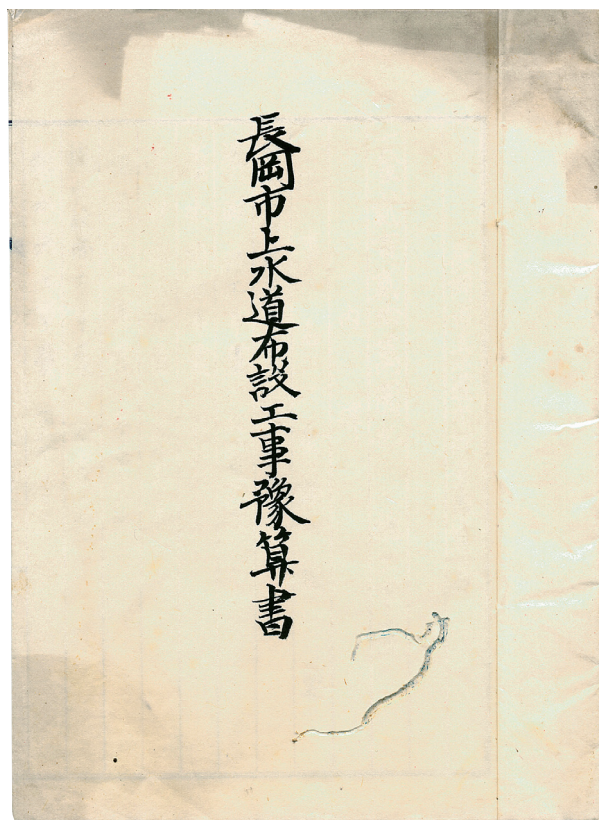 長岡市上水道布設工事豫算書